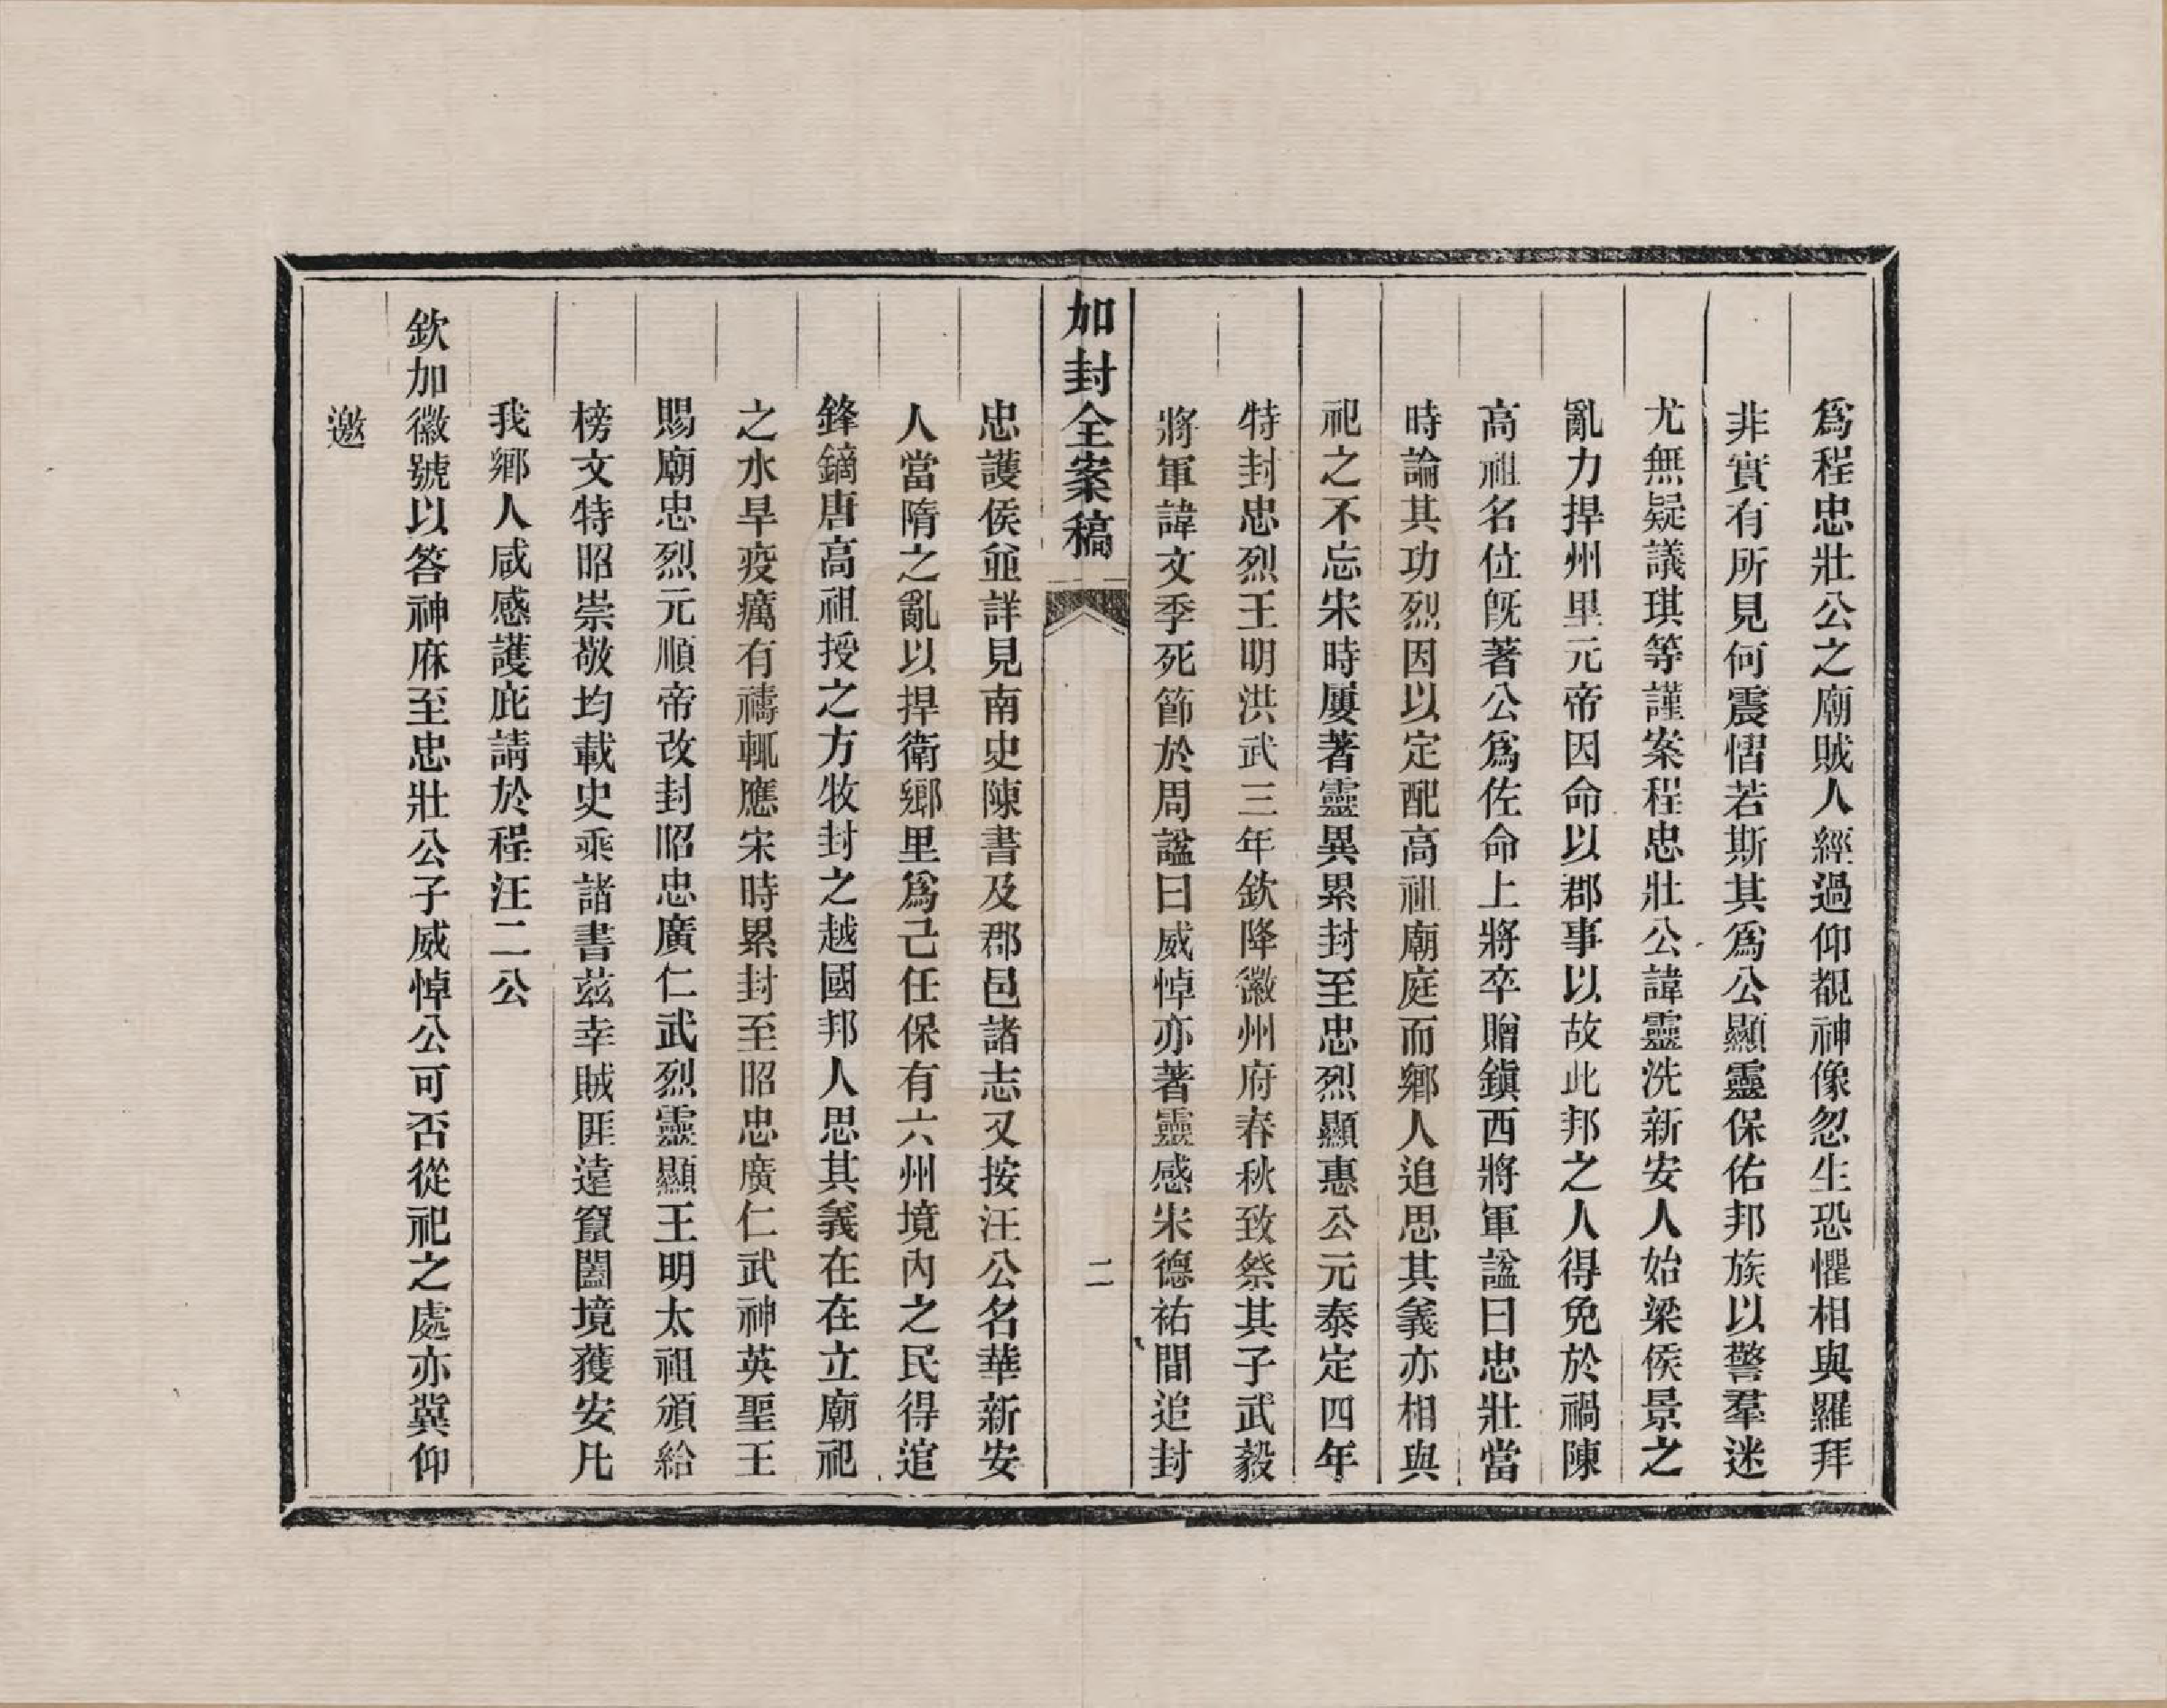 爲程忠壯公之廟賊人經過仰覩神像忽生恐懼相與羅拜
非實有所見何震慴若斯其爲公顯靈保佑邦族以警羣迷
尤無疑議琪等謹案程忠壯公諱靈洗新安人始梁侯景之
亂力捍州里元帝因命以郡事以故此邦之人得免於禍陳
高祖名位旣著公爲佐命上將卒贈鎭西將軍諡曰忠壯當
時論其功烈因以定配高祖廟庭而鄉人追思其義亦相與
祀之不忘宋時屢著靈異累封至忠烈顯惠公元泰定四年
特封忠烈王明洪武三年欽降徽州府春秋致祭其子武毅
將軍諱文季死節於周諡曰威悼亦著靈感宋德祐間追封
加封全案稿
二
忠護侯並詳見南史陳書及郡邑諸志又按汪公名華新安
人當隋之亂以捍衛鄉里爲己任保有六州境內之民得逭
鋒鏑唐高祖授之方牧封之越國邦人思其義在在立廟祀
之水旱疫癘有禱輒應宋時累封至昭忠廣仁武神英聖王
賜廟忠烈元順帝改封昭忠廣仁武烈靈顯王明太祖頒給
榜文特昭崇敬均載史乘諸書茲幸賊匪遠竄闔境獲安凡
我鄉人咸感護庇請於程汪二公
欽加徽號以答神庥至忠壯公子威悼公可否從祀之處亦冀仰
邀